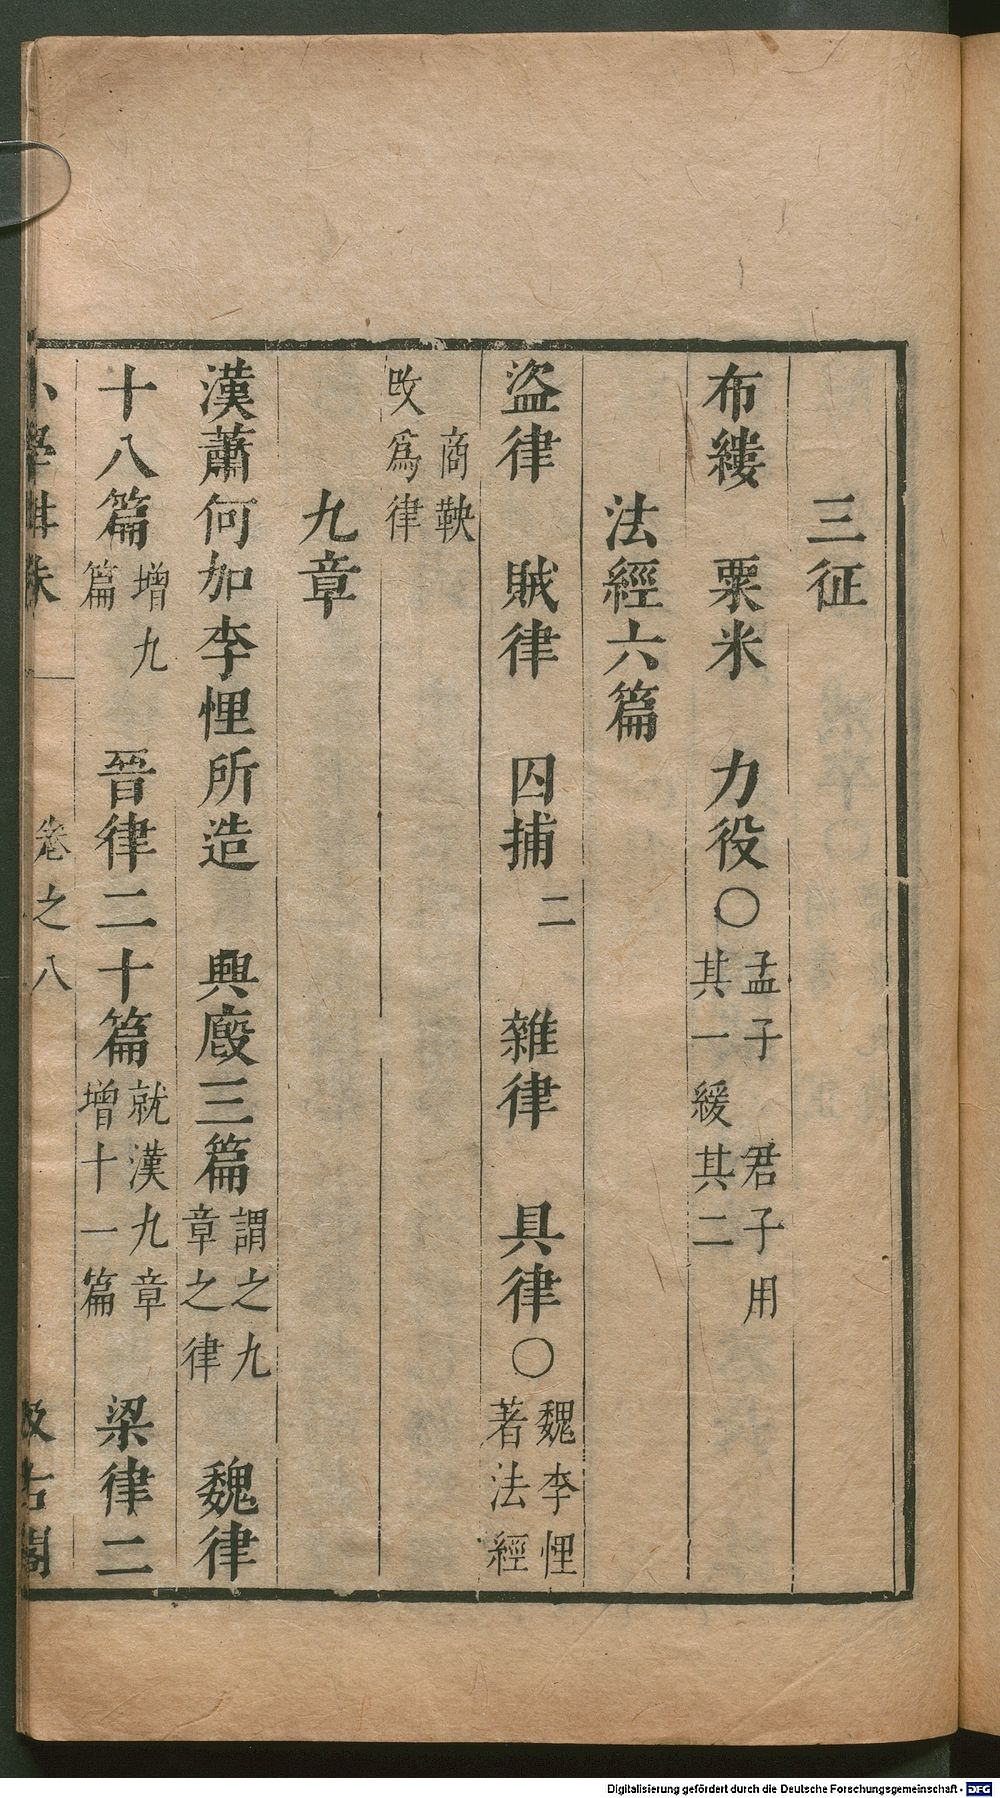 三征
布縷　粟米　力役○孟子　君子用其一緩其二
法經六篇
盜律　賊律　囚捕二　雜律　具律○魏李悝著法經
商鞅攺爲律
九章
漢蕭何加李悝所造　興廄三篇謂之九章之律　魏律
十八篇增九篇　晉律二十篇就漢九章增十一篇　梁律二
小學紺珠　卷之八　汲古閣
Digitalisierung gefördert durch die Deutsche Forschungsgemeinschaft - DFG